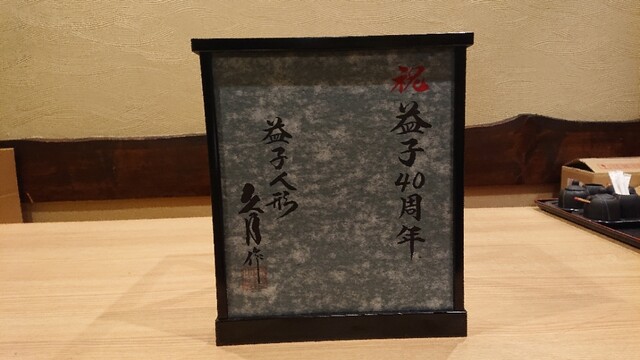 祝 益子40周年
益子人形
久月作